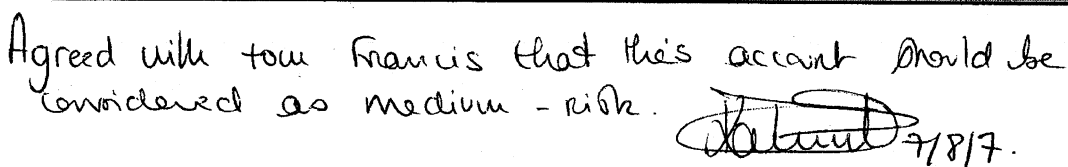 Agreed with tom Francis that this account should be
considered as medium - risk.
7/8/7.